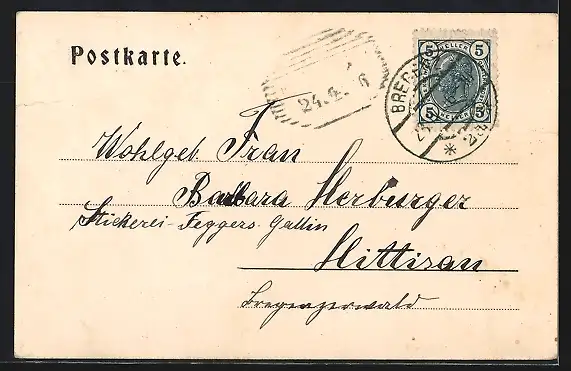 Postkarte.
24. 4. 6
5 HELLER 5
BREGE
5 HELLER 5
Wohlgeb. Frau
Barbara Herburger
Stickerei-Feggers-Gattin
Hittisau
Bregenzerwald